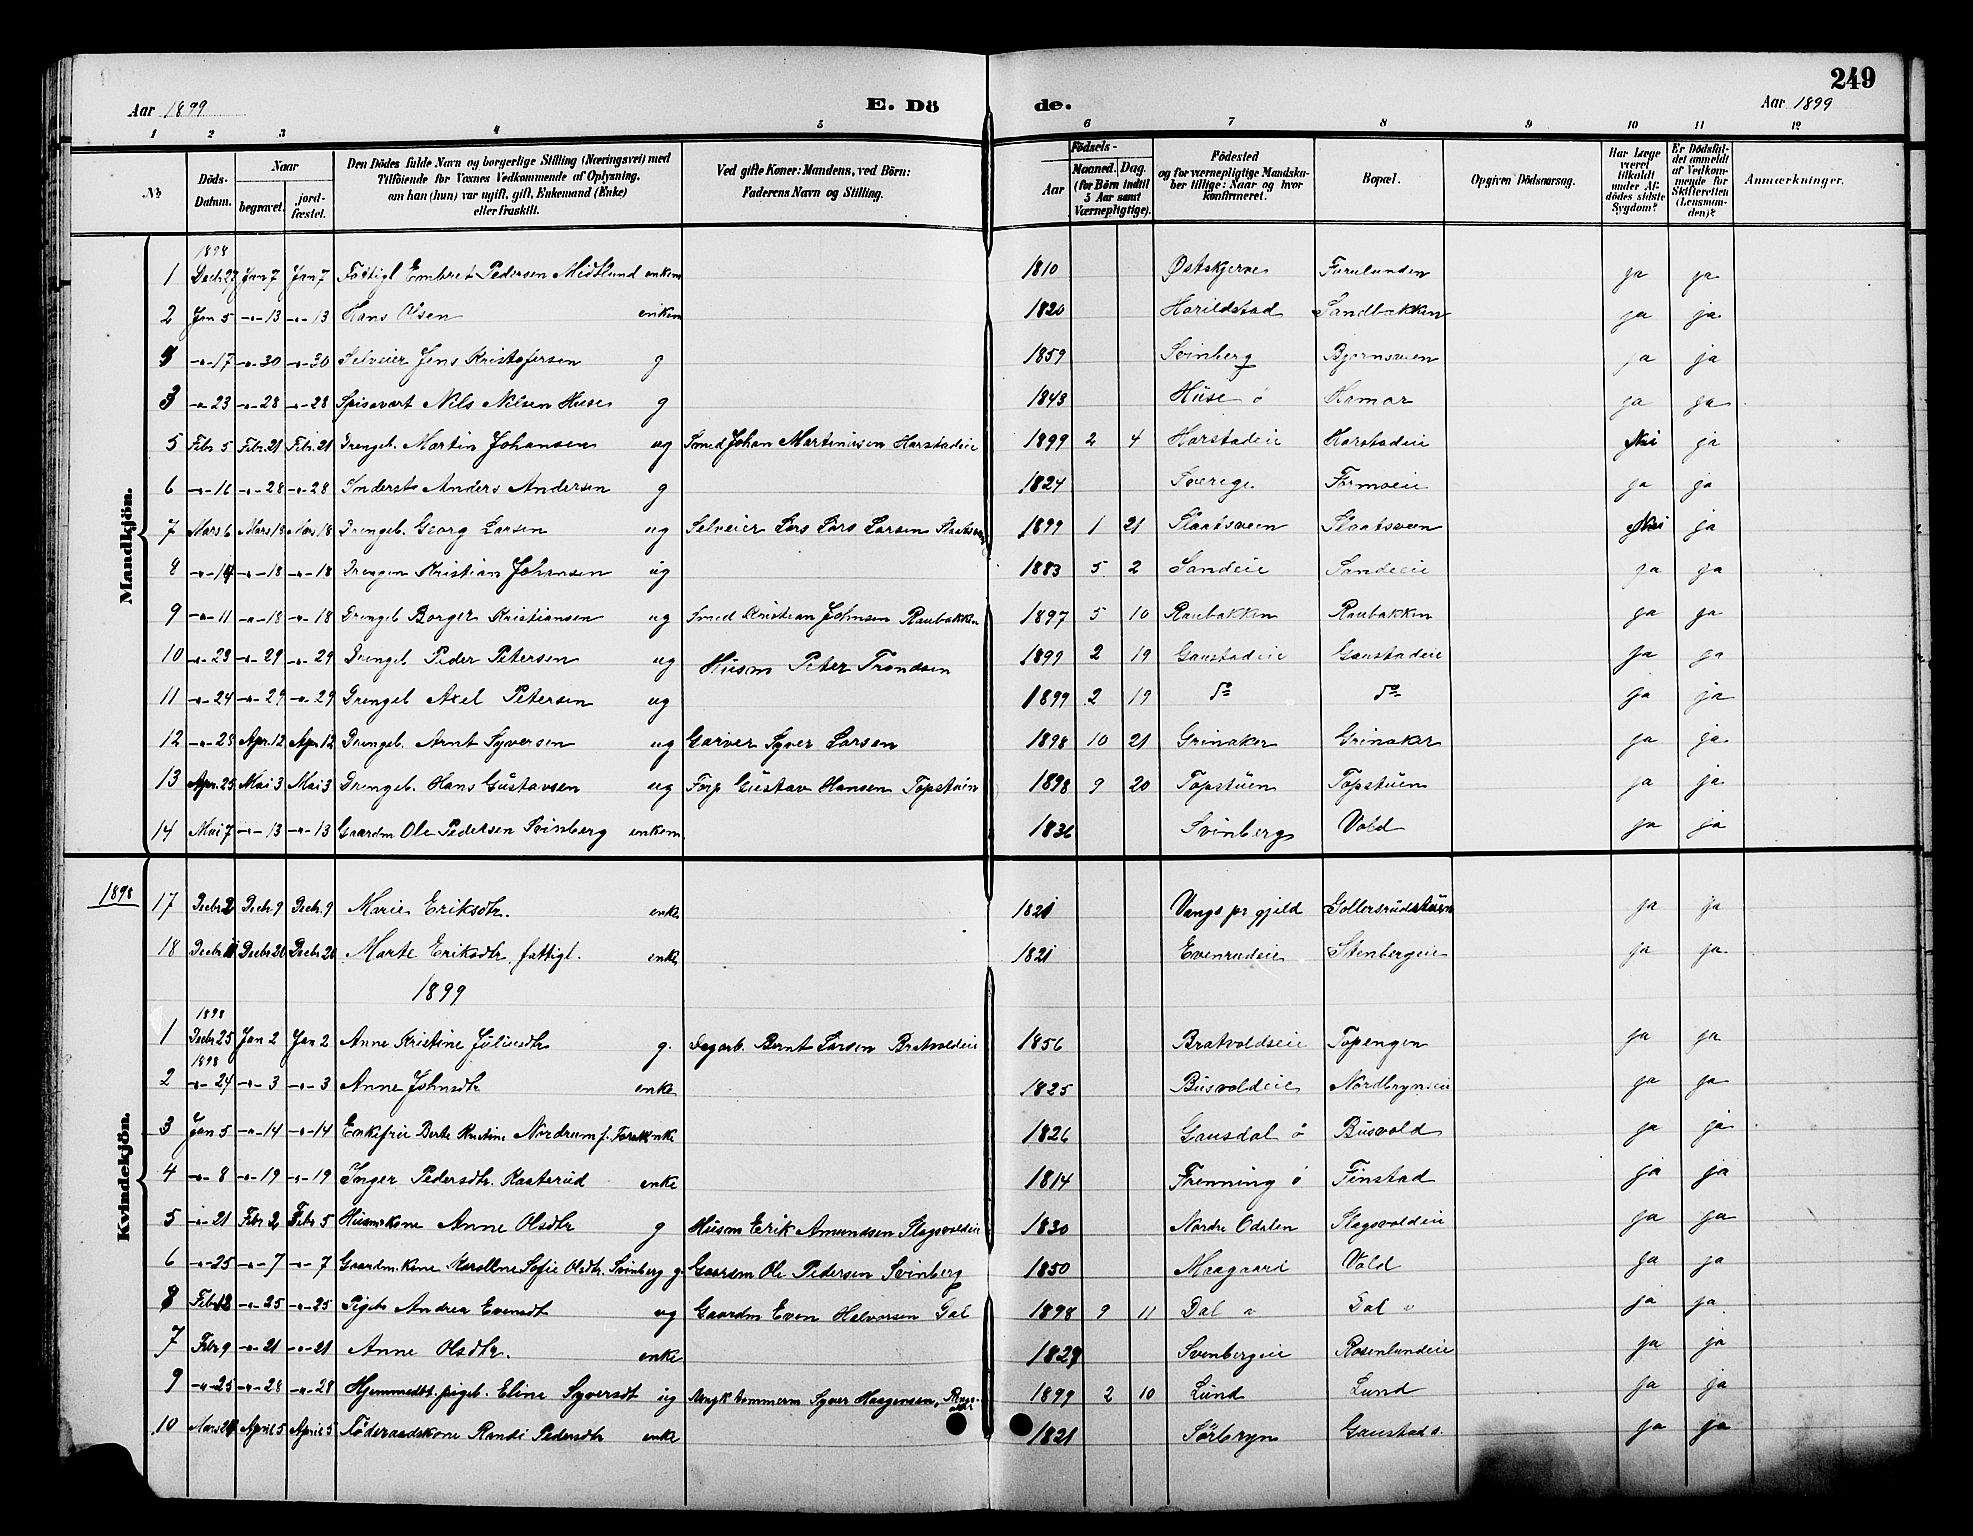 249
Aar 1899 E. Dö de. Aar 1899
1 2 3 4 5 6 7 8 9 10 11 12
№ Döds-Datum. Naar begravet. jord-fæstet. Den Dödes fulde Navn og borgerlige Stilling (Næringsvei) med Tilföiende for Voxnes Vedkommende af Oplysning, om han (hun) var ugift, gift, Enkemand (Enke) eller fraskilt. Ved gifte Koner: Mandens, ved Börn: Faderens Navn og Stilling. Födsels- Aar Maaned. Dag. (for Börn indtil 5 Aar samt Værnepligtige). Födested og for værnepligtige Mandskaber tillige: Naar og hvor konfirmeret. Bopæl. Opgiven Dödsaarsag. Har Læge været tilkaldt under Afdödes sidste Sygdom? Er Dödsfaldet anmeldt af Vedkommende for Skifteretten (Lensmanden)? Anmærkninger.
Mandkjön.
1898
1 Decbr 27 Jan 7 Jan 7 Fattigl Embret Pedersen Midtlund enkem 1810 Østskjerve Furulunden ja ja
2 Jan 5 -"- 13 -"- 13 Hans Olsen enkem 1820 Harildstad Sandbakken ja ja
-"- 17 -"- 30 -"- 30 Selveier Jens Kristofersen g 1859 Svinberg Bjørnsveen ja ja
3 -"- 23 -"- 28 -"- 28 Spisevært Nils Nilsen Huse g 1843 Huse ö Hamar ja ja
5 Febr 5 Febr. 21 Febr. 21 Drengeb. Martin Johansen ug Smed Johan Martinusen Harstadeie 1899 2 4 Harstadeie Harstadeie Nei ja
6 -"- 16 -"- 28 -"- 28 Inderst Anders Andersen g 1824 Sverige Formoeie ja ja
7 Mars 6 Mars 18 Mars 18 Drengeb. Georg Larsen ug Selveier Lars Lars Larsen 1899 1 21 Slaatsveen Slaatsveen Nei ja
8 -"- 14 -"- 18 -"- 18 Drengen Kristian Johansen ug 1883 5 2 Sandeie Sandeeie ja ja
9 -"- 11 -"- 18 -"- 18 Drengeb Borger Kristiansen ug Smed Kristian Johnsen Raubakken 1897 5 10 Raubakken Raubakken ja ja
10 -"- 23 -"- 29 -"- 29 Drengeb. Peder Petersen ug Husm Peter Trondsen 1899 2 19 Gaustadeie Gaustadeie ja ja
11 -"- 24 -"- 29 -"- 29 Drengeb Axel Petersen ug 1899 2 19 do do ja ja
12 -"- 28 Apr. 12 Apr 12 Drengeb. Arnt Syversen ug Garver Syver Larsen 1898 10 21 Grinaker Grinaker ja ja
13 Apr. 25 Mai 3 Mai 3 Drengeb. Hans Gustavsen ug Forp Gustav Hansen Topstuen 1898 9 20 Topstuen Topstuen ja ja
14 Mai 7 -"- 13 -"- 13 Gaardm Ole Pedersen Svinberg enkem 1836 Svinberg Vold ja ja
Kvindekjön.
1898 17 Decbr 2 Decbr. 9 Decbr. 9 Marie Eriksdtr. enke 1821 Vangs pr gjeld Gollersrudstuen ja ja
18 Decbr Decbr 20 Decbr 20 Marte Eriksdtr fattigl. enke 1821 Evenrudeie Stenbergeie ja ja
1899
1898
1 Decbr 25 Jan 2 Jan 2 Anne Kristine Juliusdtr g. Dagarb. Bernt Larsen Bratvoldeie 1856 Bratvoldseie Topengen ja ja
1898
2 -"- 24 -"- 3 -"- 3 Anne Johnsdtr enke 1825 Busvoldeie Nordbryneie ja ja
3 Jan 5 -"- 14 -"- 14 Enkefru Berte Kristine Nordrum f. enke 1826 Gausdal ö Busvold ja ja
4 -"- 8 -"- 19 -"- 19 Inger Pedersdtr. Kasterud enke 1814 Frenning ö Finstad ja ja
5 -"- 21 Febr 2 Febr 5 Husmkone Anne Olsdtr g Husm Erik Amundsen Slagsvoldeie 1830 Nordre Odalen Slagsvoldeie ja ja
6 -"- 25 -"- 7 -"- 7 Gaardm.kone Karoline Sofie Olsdtr. Svinberg g Gaardm Ole Pedersen Svinberg 1850 Maagaard Vold ja ja
8 Febr 12 -"- 25 -"- 25 Pigeb Andrea Evensdt ug Gaardm Even Halvorsen Dal 1898 9 11 Dal ö Dal ö ja ja
7 Febr 9 -"- 21 -"- 21 Anne Olsdtr. enke 1829 Svenbergeie Rosenlundeie ja ja
9 -"- 25 -"- 28 -"- 28 Hjemmedbt. pigeb. Eline Syversdt ug Syver Haagensen, 1899 2 10 Lund Lund ja ja
10 Mars April 5 April 5 Föderaadskone Randi Pedersdtr enke 1821 Sörbryn Gaustad ö. ja ja